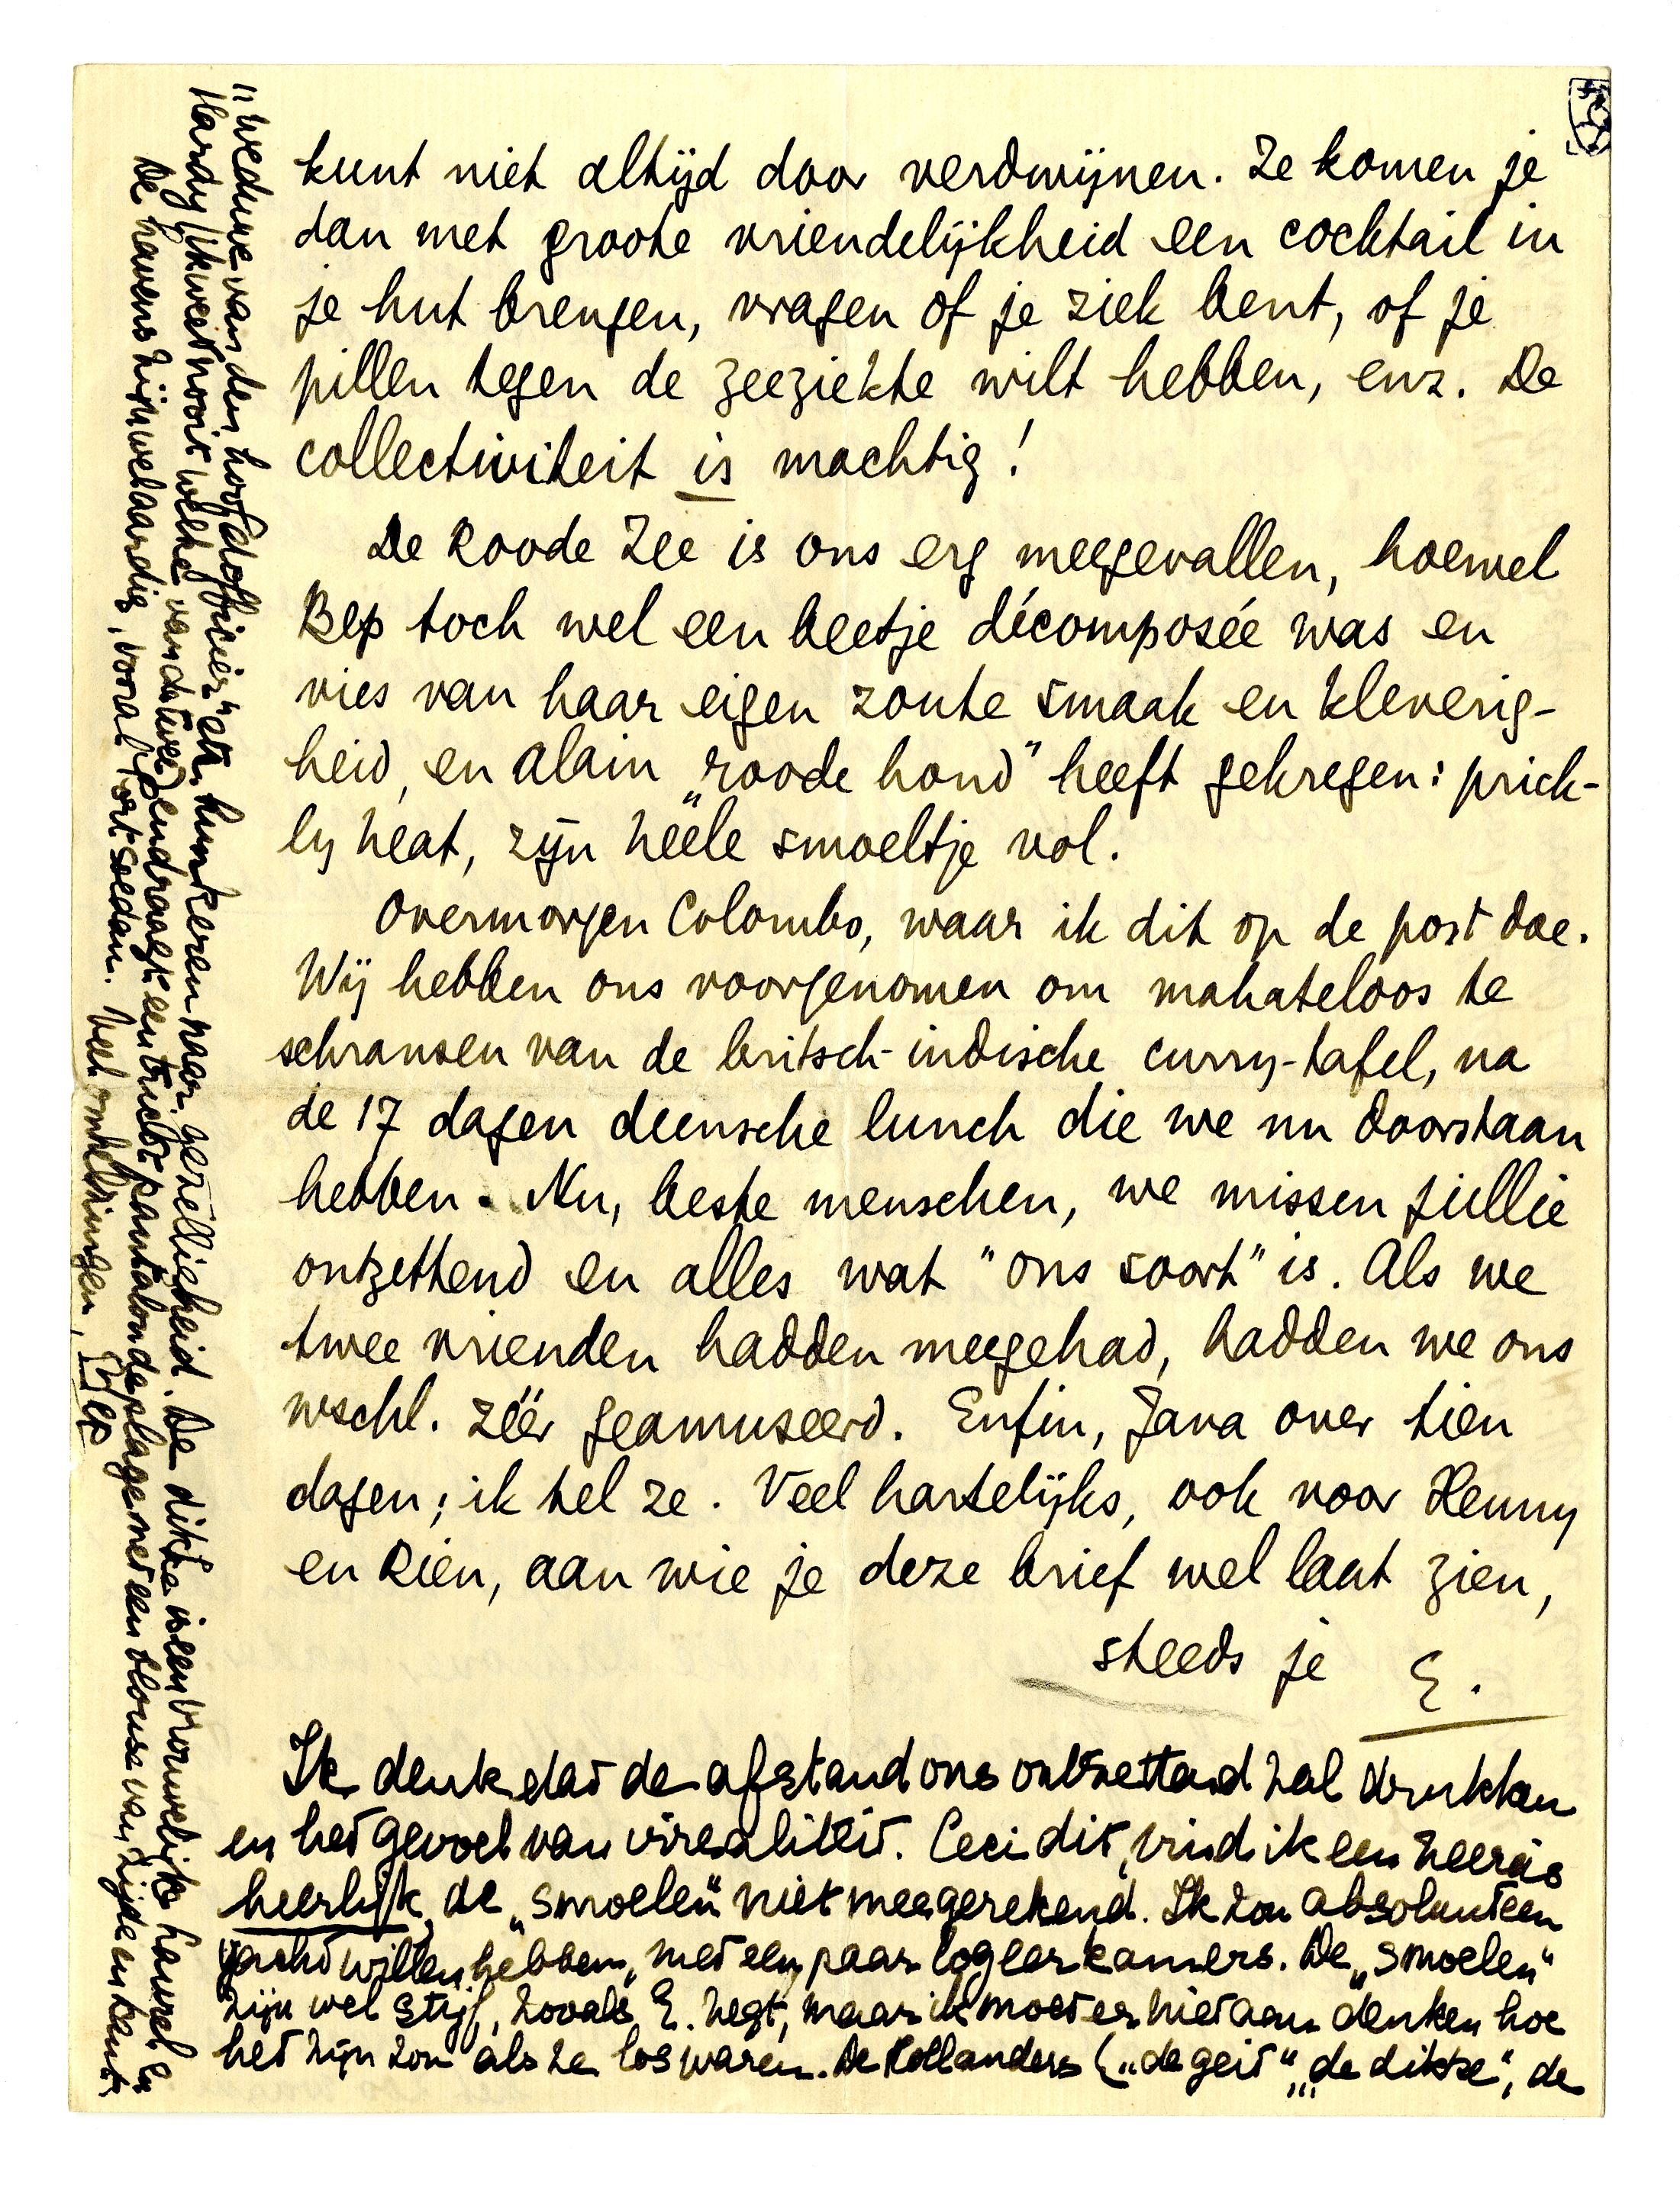 kunt niet altijd door verdwijnen. Ze komen je
dan met groote vriendelijkheid een cocktail in
je hut brengen, vragen of je ziek bent, of je
pillen tegen de zeeziekte wilt hebben, enz. De
collectiviteit is machtig!
De Roode Zee is ons erg meegevallen, hoewel
Bep toch wel een beetje décomposée was en
vies van haar eigen zoute smaak en kleverig-
heid, en Alain „roode hond” heeft gekregen: prick-
ly heat, zijn héele smoeltje vol.
Overmorgen Colombo, waar ik dit op de post doe.
Wij hebben ons voorgenomen om mahateloos te
schransen van de britsch-indische curry-tafel, na
de 17 dagen deensche lunch die we nu doorstaan
hebben. Nu, beste menschen, we missen jullie
ontzettend en alles wat "ons soort" is. Als we
twee vrienden hadden meegehad, hadden we ons
wschl. zéér geamuseerd. Enfin, Java over tien
dagen; ik tel ze. Veel hartelijks, ook voor Henny
en Rien, aan wie je deze brief wel laat zien,
steeds je E.
Ik denk dat de afstand ons ontzettend zal drukken
en het gevoel van irrealiteit. Ceci dit, vind ik een zeereis
heerlijk, de „smoelen” niet meegerekend. Ik zou absoluut een
yacht willen hebben, met een paar logeerkamers. De „smoelen”
zijn wel stijf, zooals E. zegt, maar ik moet er niet aan denken hoe
het zijn zou als ze los waren. De Hollanders („de geit”, „de dikke”, de
„weduwe van den hoofdofficier” etc. hunkeren naar gezelligheid. De dikke is een vrouwelijke Laurel en
Hardy (ik weet nooit welke van de twee) en draagt een tricot pantalon de plage met een blouse van zijde en kant.
De havens zijn wel aardig, vooral Port Soedan. Veel omhelzingen, Bep